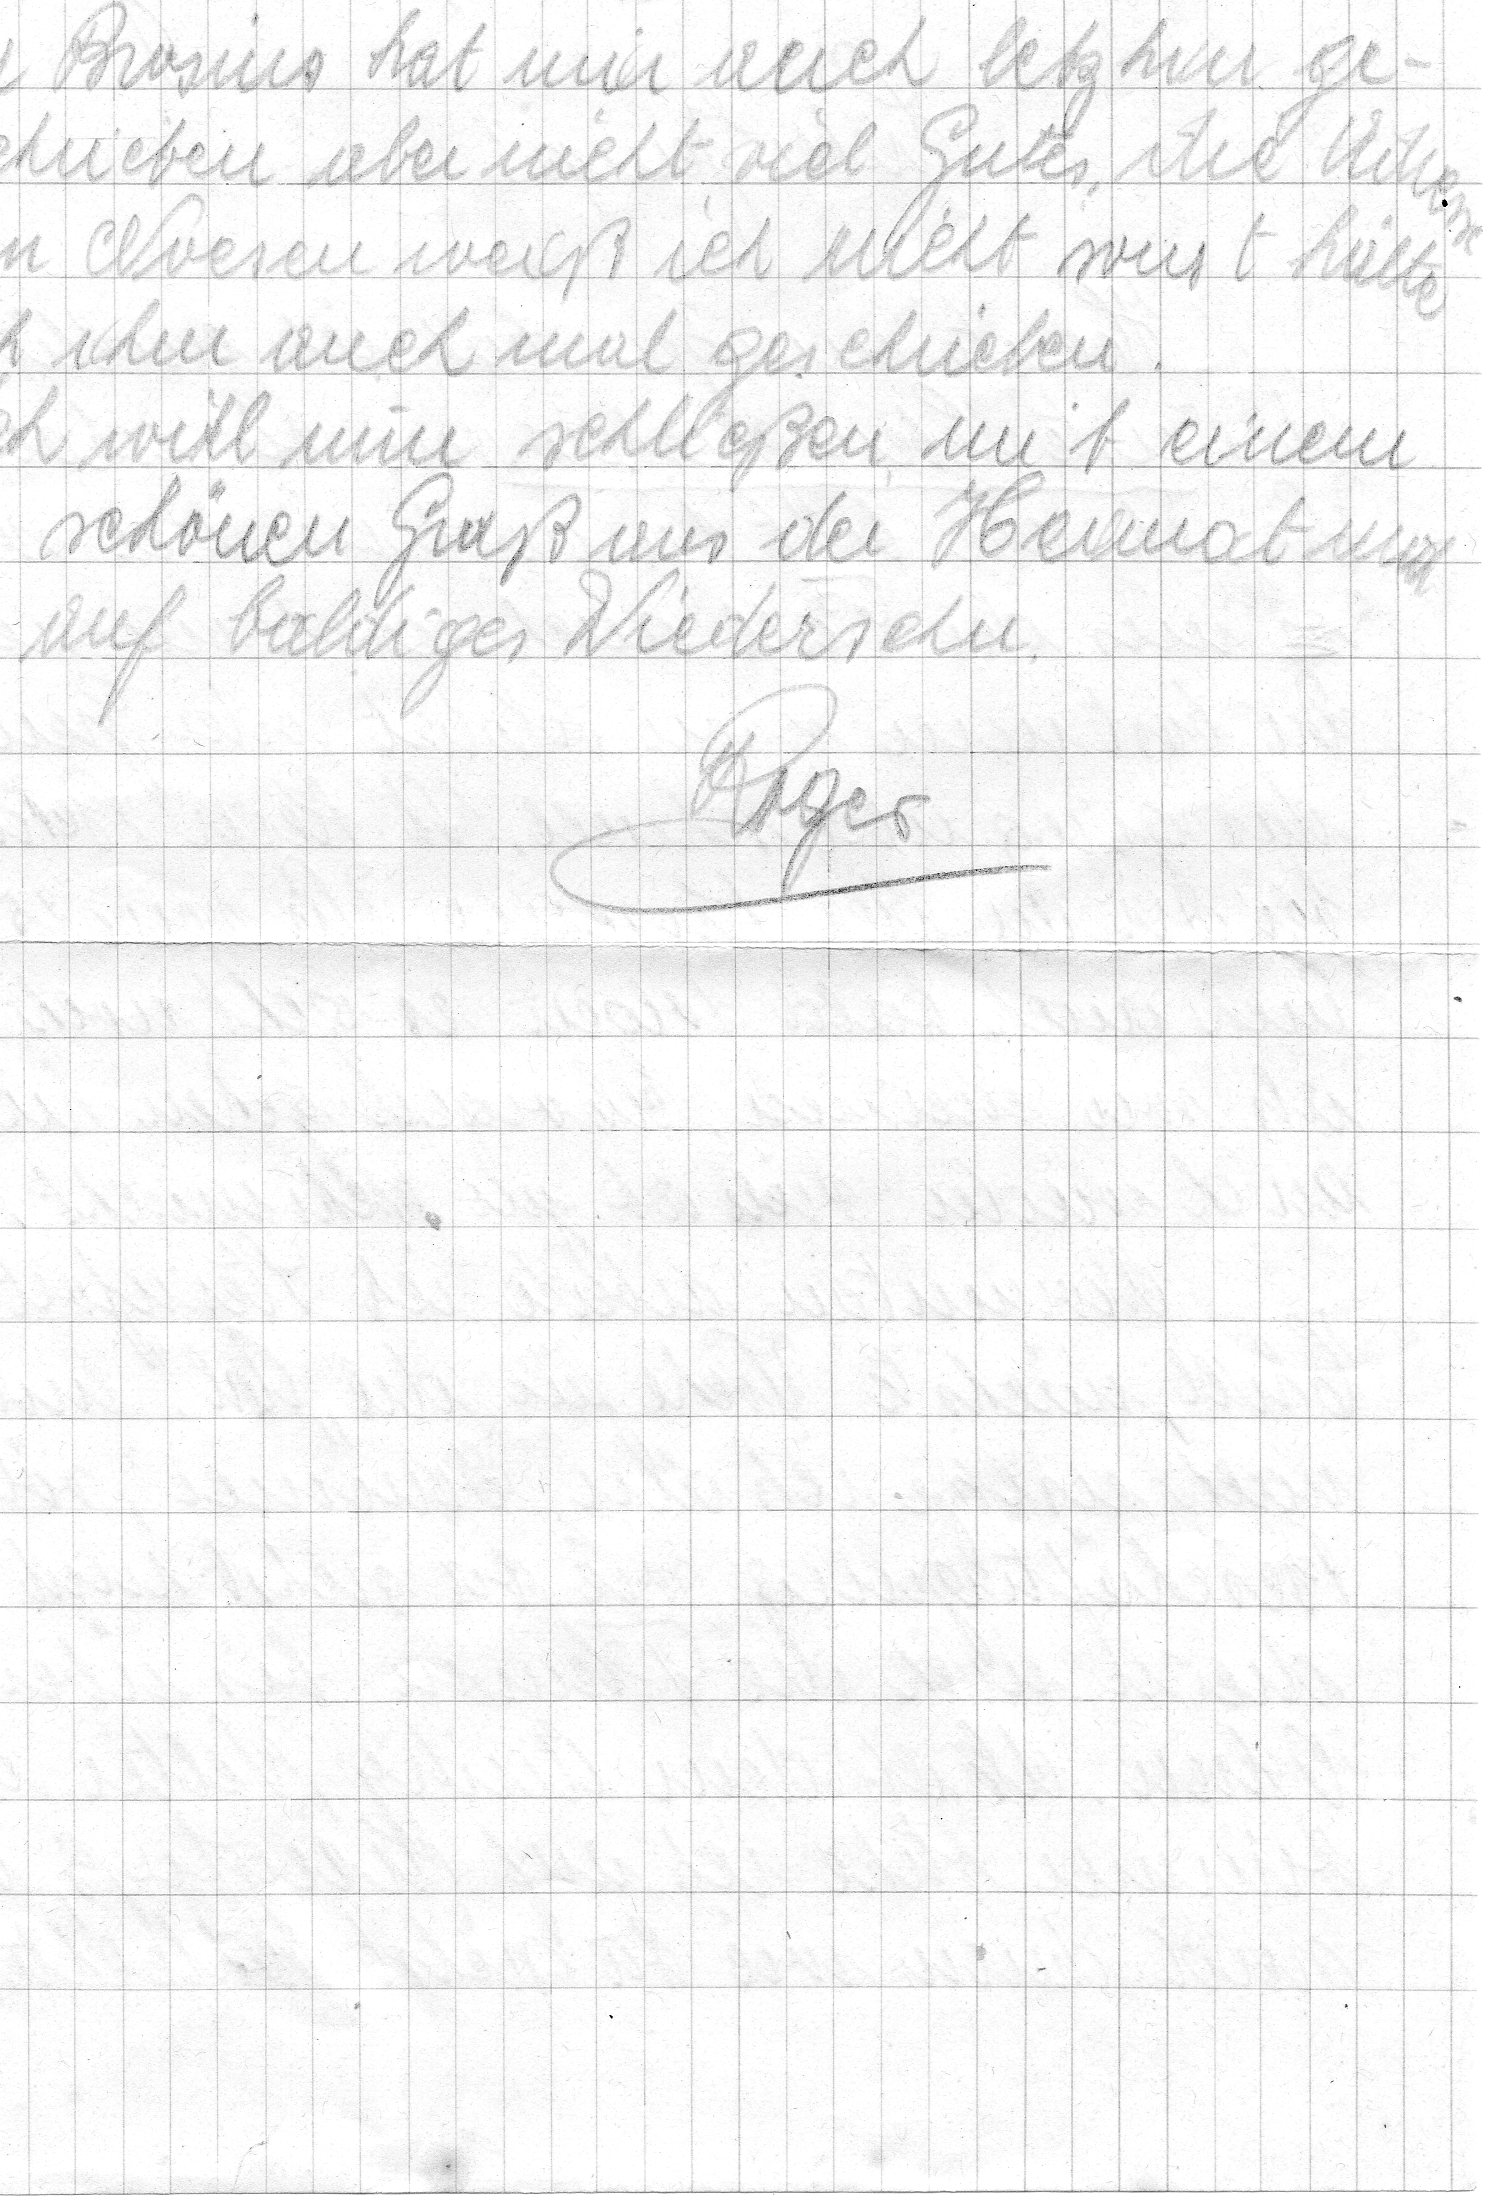 Brosius hat mir auch letzhin ge-
chrieben aber nicht viel Gutes, die Adresse
n Noesen weiß ich nicht sonst hätte
h ihm auch mal geschrieben.
ch will nun schließen mit einem
schönen Gruß aus der Heimat und
auf baldiges Wiedersehn.
Roger